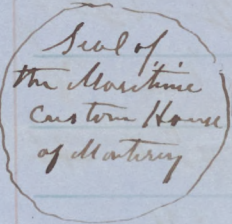 Seal of
the Maritime
Custom House
of Monterey